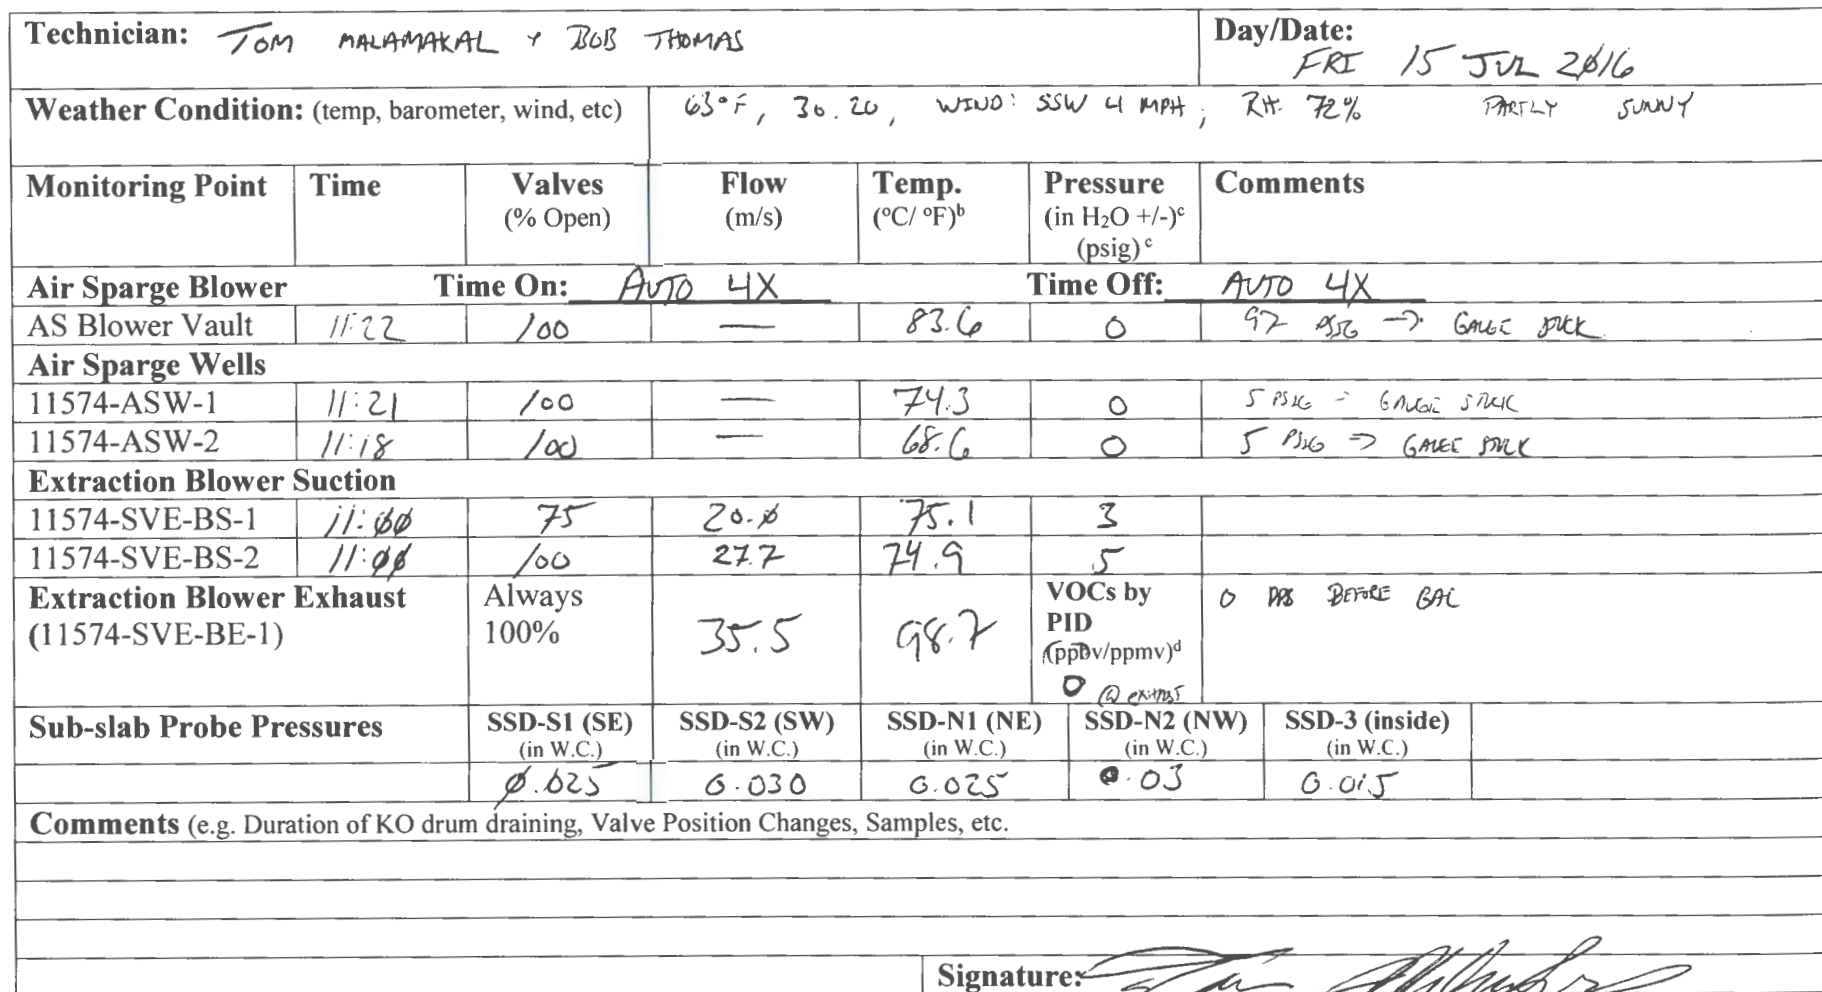 Technician: TOM MALAMAKAL + BOB THOMAS Day/Date:
FRI 15 JUL 2016
Weather Condition: (temp, barometer, wind, etc) 63°F, 30.20, WIND: SSW 4 MPH; RH: 72% PARTLY SUNNY
Monitoring Point Time Valves Flow Temp. Pressure Comments
(% Open) (m/s) (°C/ °F)b (in H2O +/-)c
(psig) c
Air Sparge Blower Time On: AUTO 4X Time Off: AUTO 4X
AS Blower Vault 11:22 100 — 83.6 0 92 PSIG -> GAUGE STUCK
Air Sparge Wells
11574-ASW-1 11:21 100 — 74.3 0 5 PSIG - GAUGE STUCK
11574-ASW-2 11:18 100 — 68.6 0 5 PSIG => GAUGE STUCK
Extraction Blower Suction
11574-SVE-BS-1 11:00 75 20.0 75.1 3
11574-SVE-BS-2 11:00 100 27.7 74.9 5
Extraction Blower Exhaust Always VOCs by 0 PPB BEFORE GAC
(11574-SVE-BE-1) 100% 35.5 98.7 PID
(ppbv/ppmv)d
0 @ EXHAUST
Sub-slab Probe Pressures SSD-S1 (SE) SSD-S2 (SW) SSD-N1 (NE) SSD-N2 (NW) SSD-3 (inside)
(in W.C.) (in W.C.) (in W.C.) (in W.C.) (in W.C.)
0.025 0.030 0.025 0.03 0.015
Comments (e.g. Duration of KO drum draining, Valve Position Changes, Samples, etc.
Signature: